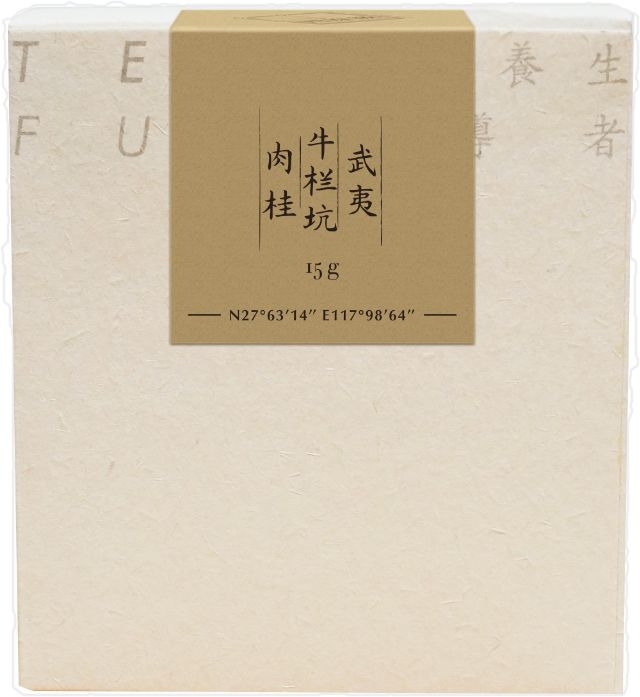 T E 養 生
F U 導 者
武夷
牛栏坑
肉桂
15g
N27°63′14″ E117°98′64″